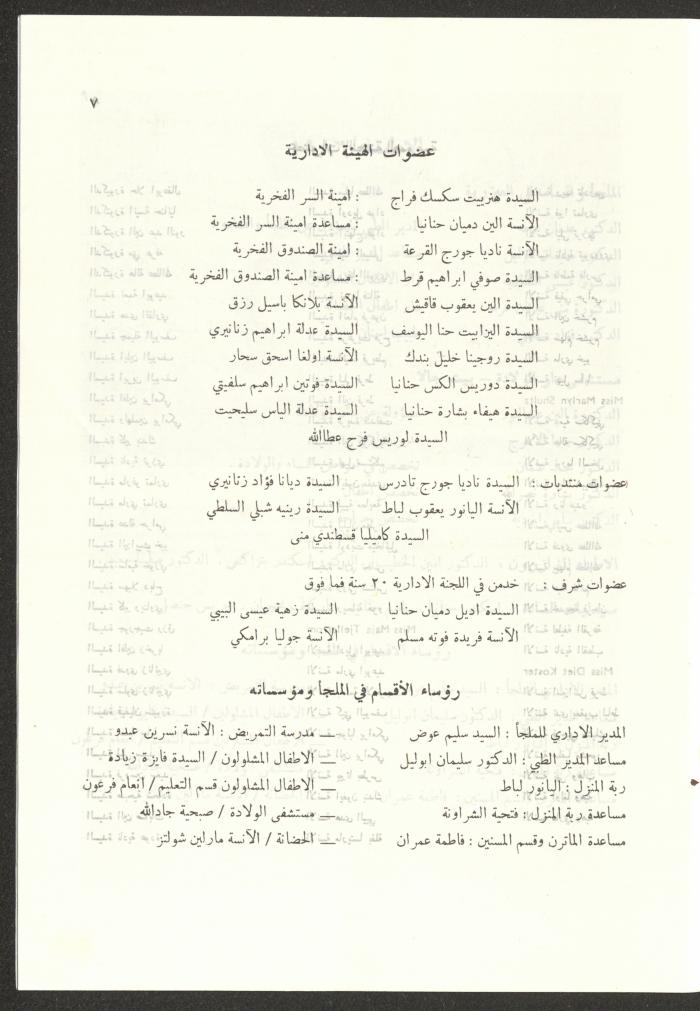 ٧
عضوات الهيئة الادارية
السيدة هنرييت سكسك فراج : امينة السر الفخرية
الآنسة الين دميان حنانيا : مساعدة امينة السر الفخرية
الآنسة ناديا جورج القرعة : امينة الصندوق الفخرية
السيدة صوفي ابراهيم قرط : مساعدة امينة الصندوق الفخرية
السيدة الين يعقوب قاقيش الآنسة بلانكا باسيل رزق
السيدة اليزابيت حنا اليوسف السيدة عدلة ابراهيم زنانيري
السيدة روجينا خليل بندك الآنسة اولغا اسحق سحار
السيدة دوريس الكس حنانيا السيدة فوتين ابراهيم سلفيتي
السيدة هيفاء بشارة حنانيا السيدة عدلة الياس سليحيت
السيدة لوريس فرح عطاالله
عضوات منتدبات : السيدة ناديا جورج تادرس السيدة ديانا فؤاد زنانيري
الآنسة اليانور يعقوب لباط السيدة رينيه شبلي السلطي
السيدة كاميليا قسطندي منى
عضوات شرف : خدمن في اللجنة الادارية ٢٠ سنة فما فوق
السيدة اديل دميان حنانيا السيدة زهية عيسى البيبي
الآنسة فريدة فوته مسلم الآنسة جوليا برامكي
رؤساء الأقسام في الملجأ ومؤسساته
المدير الاداري للملجأ : السيد سليم عوض — مدرسة التمريض : الآنسة نسرين عبدو
مساعد المدير الطبي : الدكتور سليمان ابوليل — الاطفال المشلولون / السيدة فايزة زيادة
ربة المنزل : اليانور لباط — الاطفال المشلولون قسم التعليم / انعام فرعون
مساعدة ربة المنزل : فتحية الشراونة — مستشفى الولادة / صبحية جادالله
مساعدة الماترن وقسم المسنين : فاطمة عمران — الحضانة / الآنسة مارلين شولتز